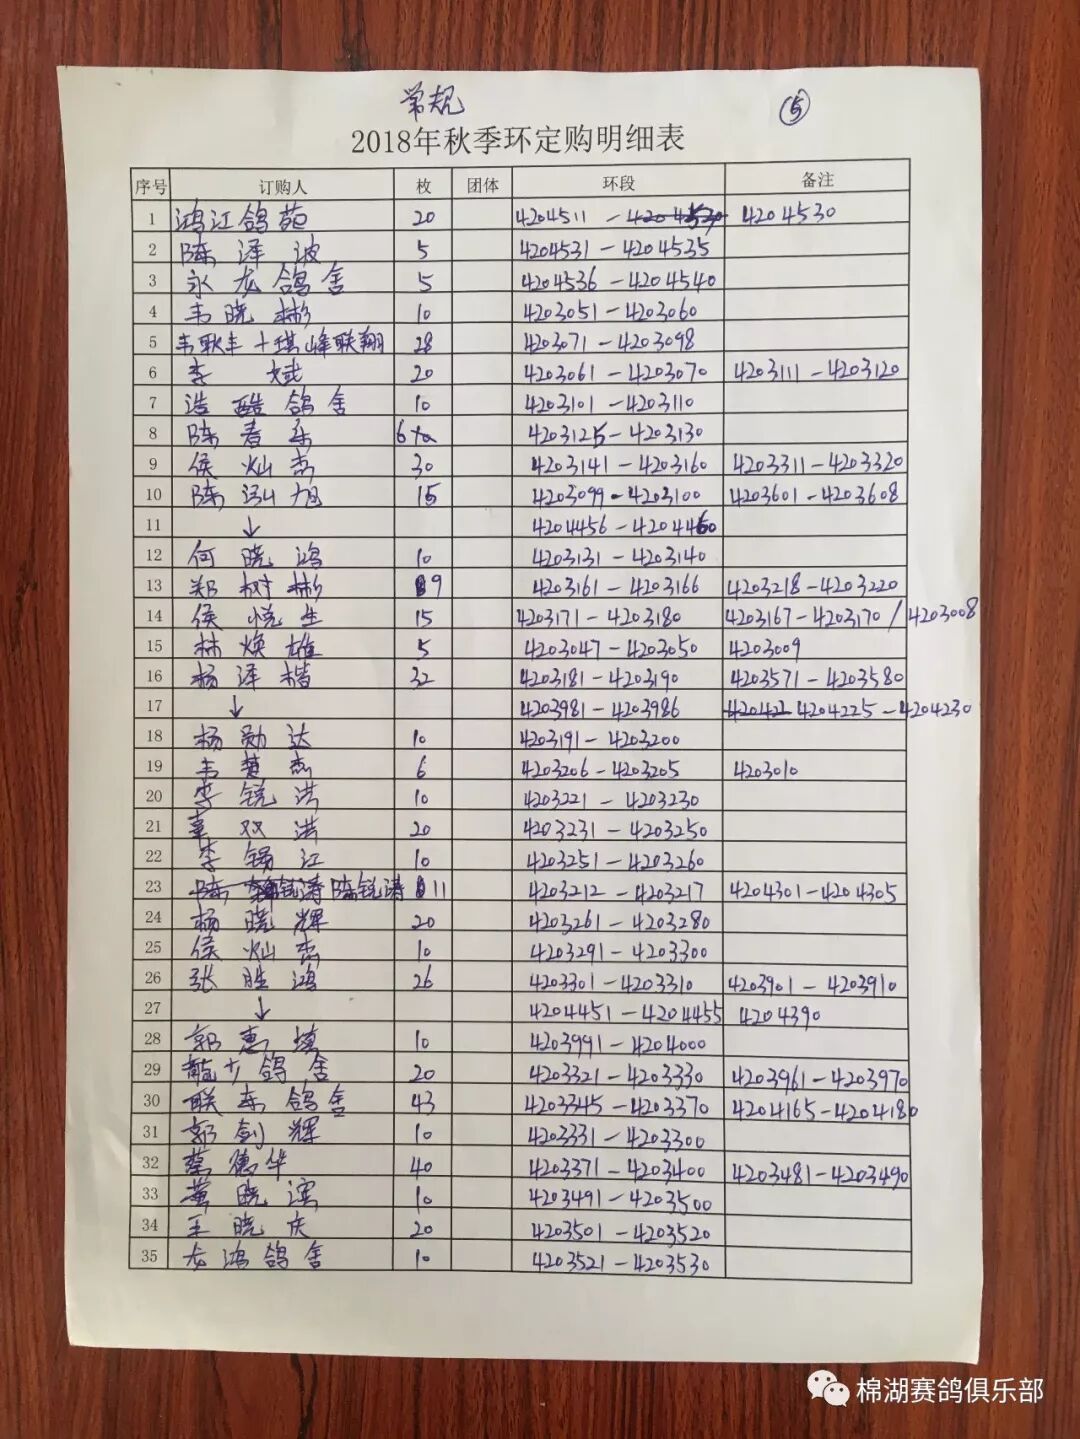 常规
⑤
2018年秋季环定购明细表
序号 订购人 枚 团体 环段 备注
1 鸿江鸽苑 20 4204511－4204530 4204530
2 陈泽波 5 4204531－4204535
3 永龙鸽舍 5 4204536－4204540
4 韦晓彬 10 4203051－4203060
5 韦耿丰十琪峰联翔 28 4203071－4203098
6 李斌 20 4203061－4203070 4203111－4203120
7 浩酷鸽舍 10 4203101－4203110
8 陈春乐 6 4203125－4203130
9 侯灿杰 30 4203141－4203160 4203311－4203320
10 陈泓旭 15 4203099－4203100 4203601－4203608
11 ↓ 4204456－4204460
12 何晓鸿 10 4203131－4203140
13 郑树彬 9 4203161－4203166 4203218－4203220
14 侯悦生 15 4203171－4203180 4203167－4203170/4203008
15 林焕雄 5 4203047－4203050 4203009
16 杨泽楷 32 4203181－4203190 4203571－4203580
17 ↓ 4203981－4203986 420422 4204225－4204230
18 杨勋达 10 4203191－4203200
19 韦楚杰 6 4203206－4203205 4203010
20 李锐洪 10 4203221－4203230
21 辜双洪 20 4203231－4203250
22 李锡江 10 4203251－4203260
23 陈锐涛 陈锐涛 11 4203212－4203217 4204301－4204305
24 杨晓辉 20 4203261－4203280
25 侯灿杰 10 4203291－4203300
26 张胜鸿 26 4203301－4203310 4203901－4203910
27 ↓ 4204451－4204455 4204390
28 郭惠填 10 4203991－4204000
29 龍少鸽舍 20 4203321－4203330 4203961－4203970
30 联东鸽舍 43 4203345－4203370 4204165－4204180
31 郭剑辉 10 4203331－4203300
32 蔡德华 40 4203371－4203400 4203481－4203490
33 黄晓滨 10 4203491－4203500
34 王晓庆 20 4203501－4203520
35 龙鸿鸽舍 10 4203521－4203530
棉湖赛鸽俱乐部